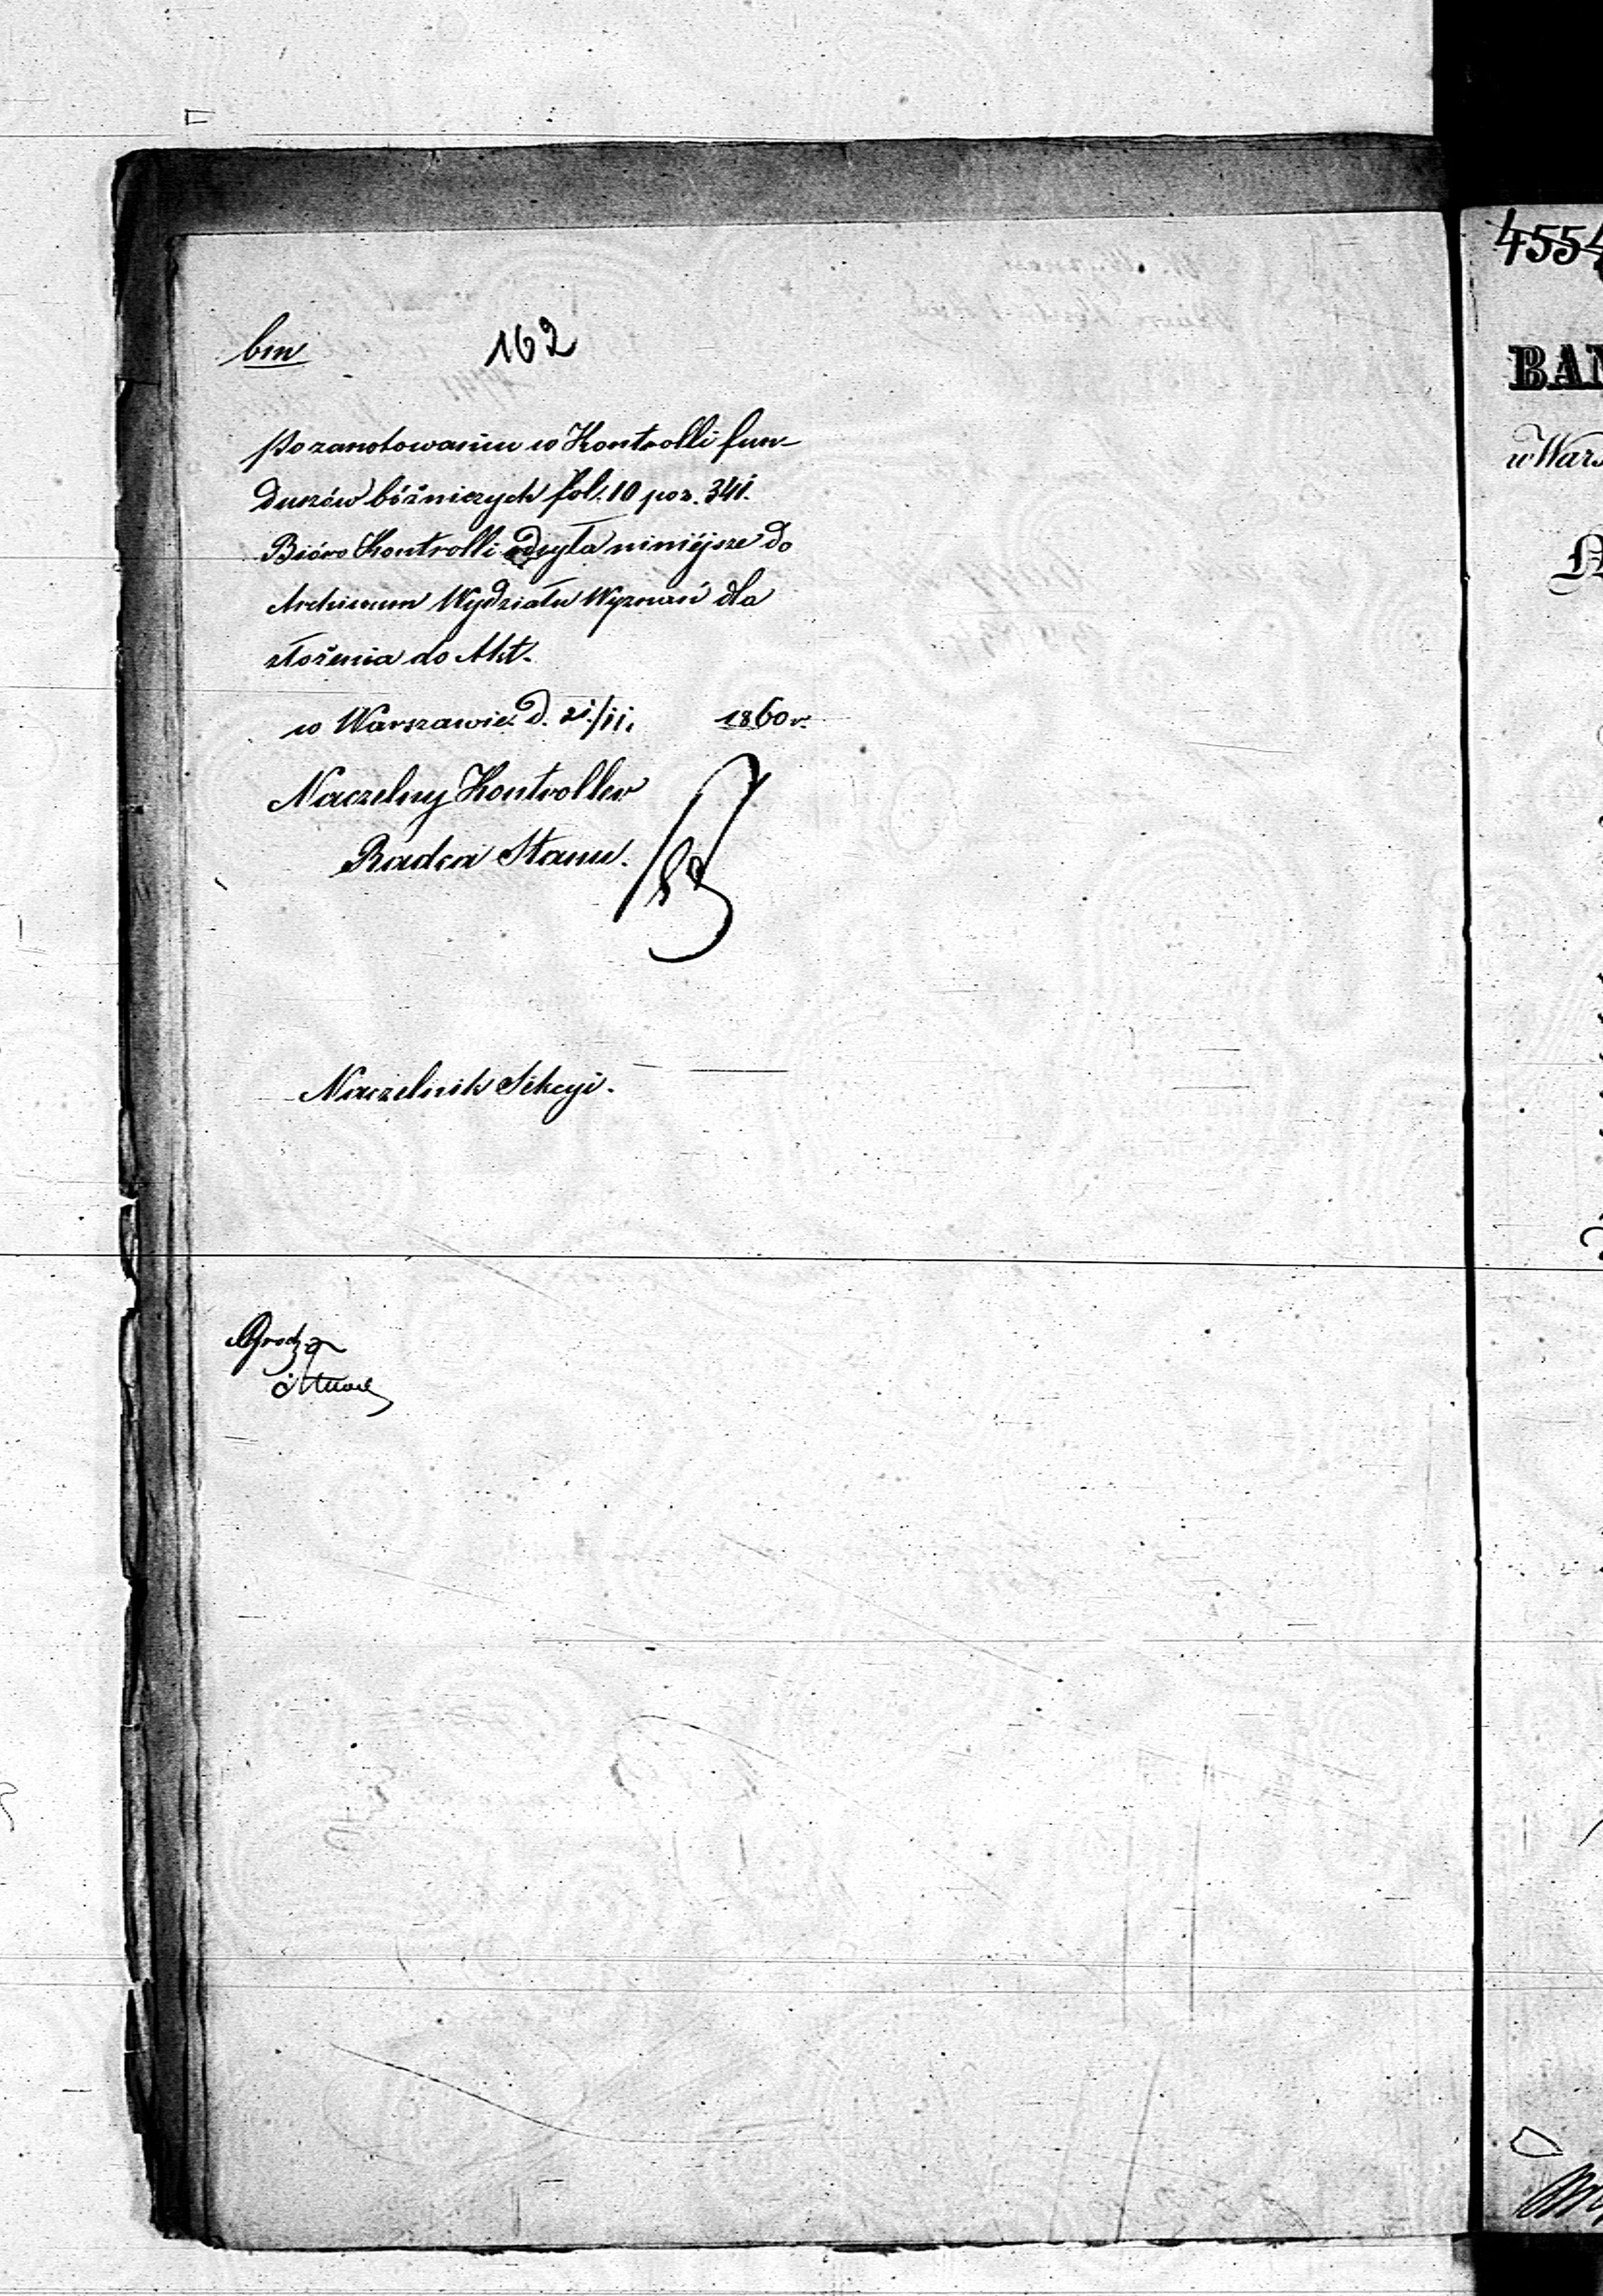 bm 162
Po zanotowaniu w Kontrolli fun-
duszów bóżniczych fol. 10 poz. 341.
Bióro Kontrolli odsyła niniejsze do
Archiwum Wydziału Wyznań dla
złożenia do Akt.
w Warszawie d. 21/11. 1860 r.
Naczelny Kontroller
Radca Stanu.
Naczelnik Sekcyi.
4554
BAN
w Wars